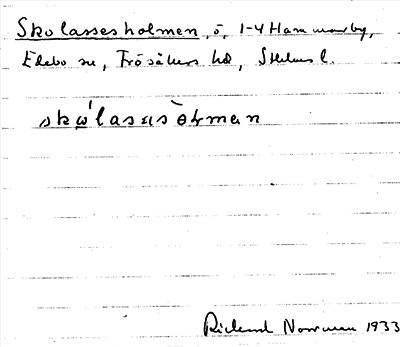 Skolassesholmen, ö, 1-4 Hammarby,
Edebo sn, Frösåkers hd, Sthlms l.
skὼlasəsòɫmen
Rickard Norrman 1933